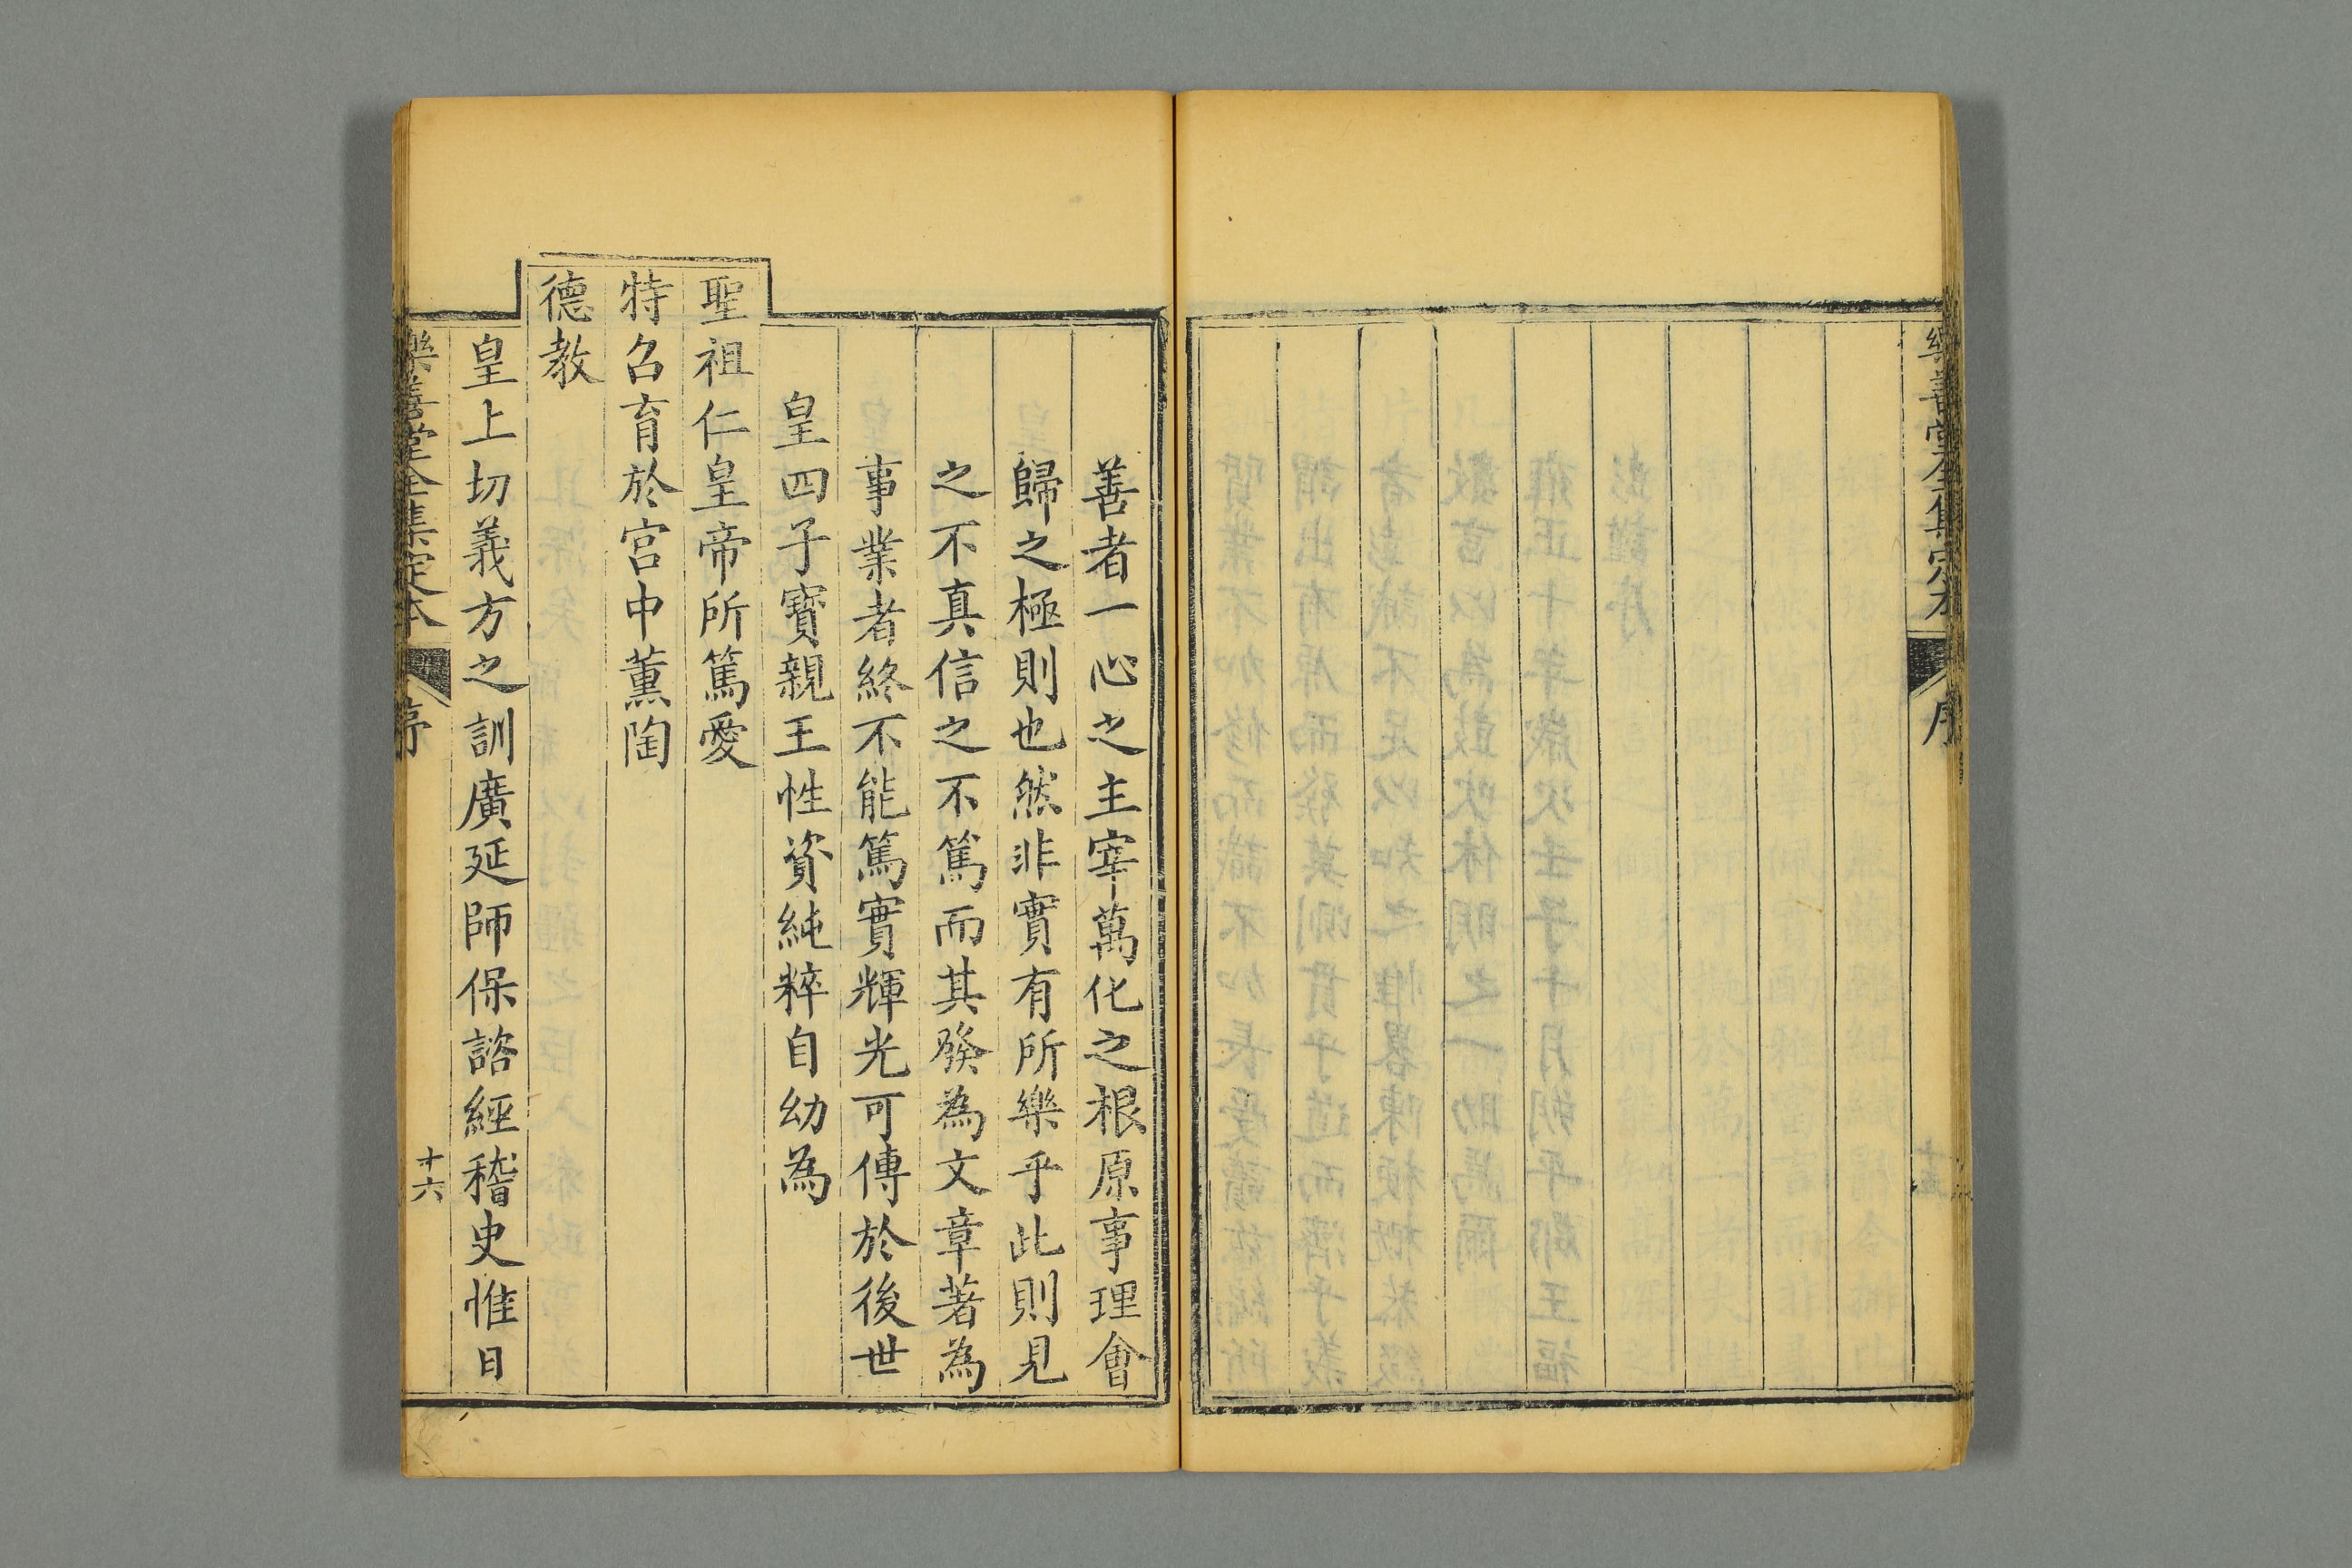 樂善堂全集定本
序
善者一心之主宰萬化之根原事理會
歸之極則也然非實有所樂乎此則見
之不真信之不篤而其發為文章著為
事業者終不能篤實輝光可傳於後世
皇四子寶親王性資純粹自幼為
聖祖仁皇帝所篤愛
特召育於宮中薰陶
德教
皇上切義方之訓廣延師保諮經稽史惟日
樂善堂全集定本
序
十六